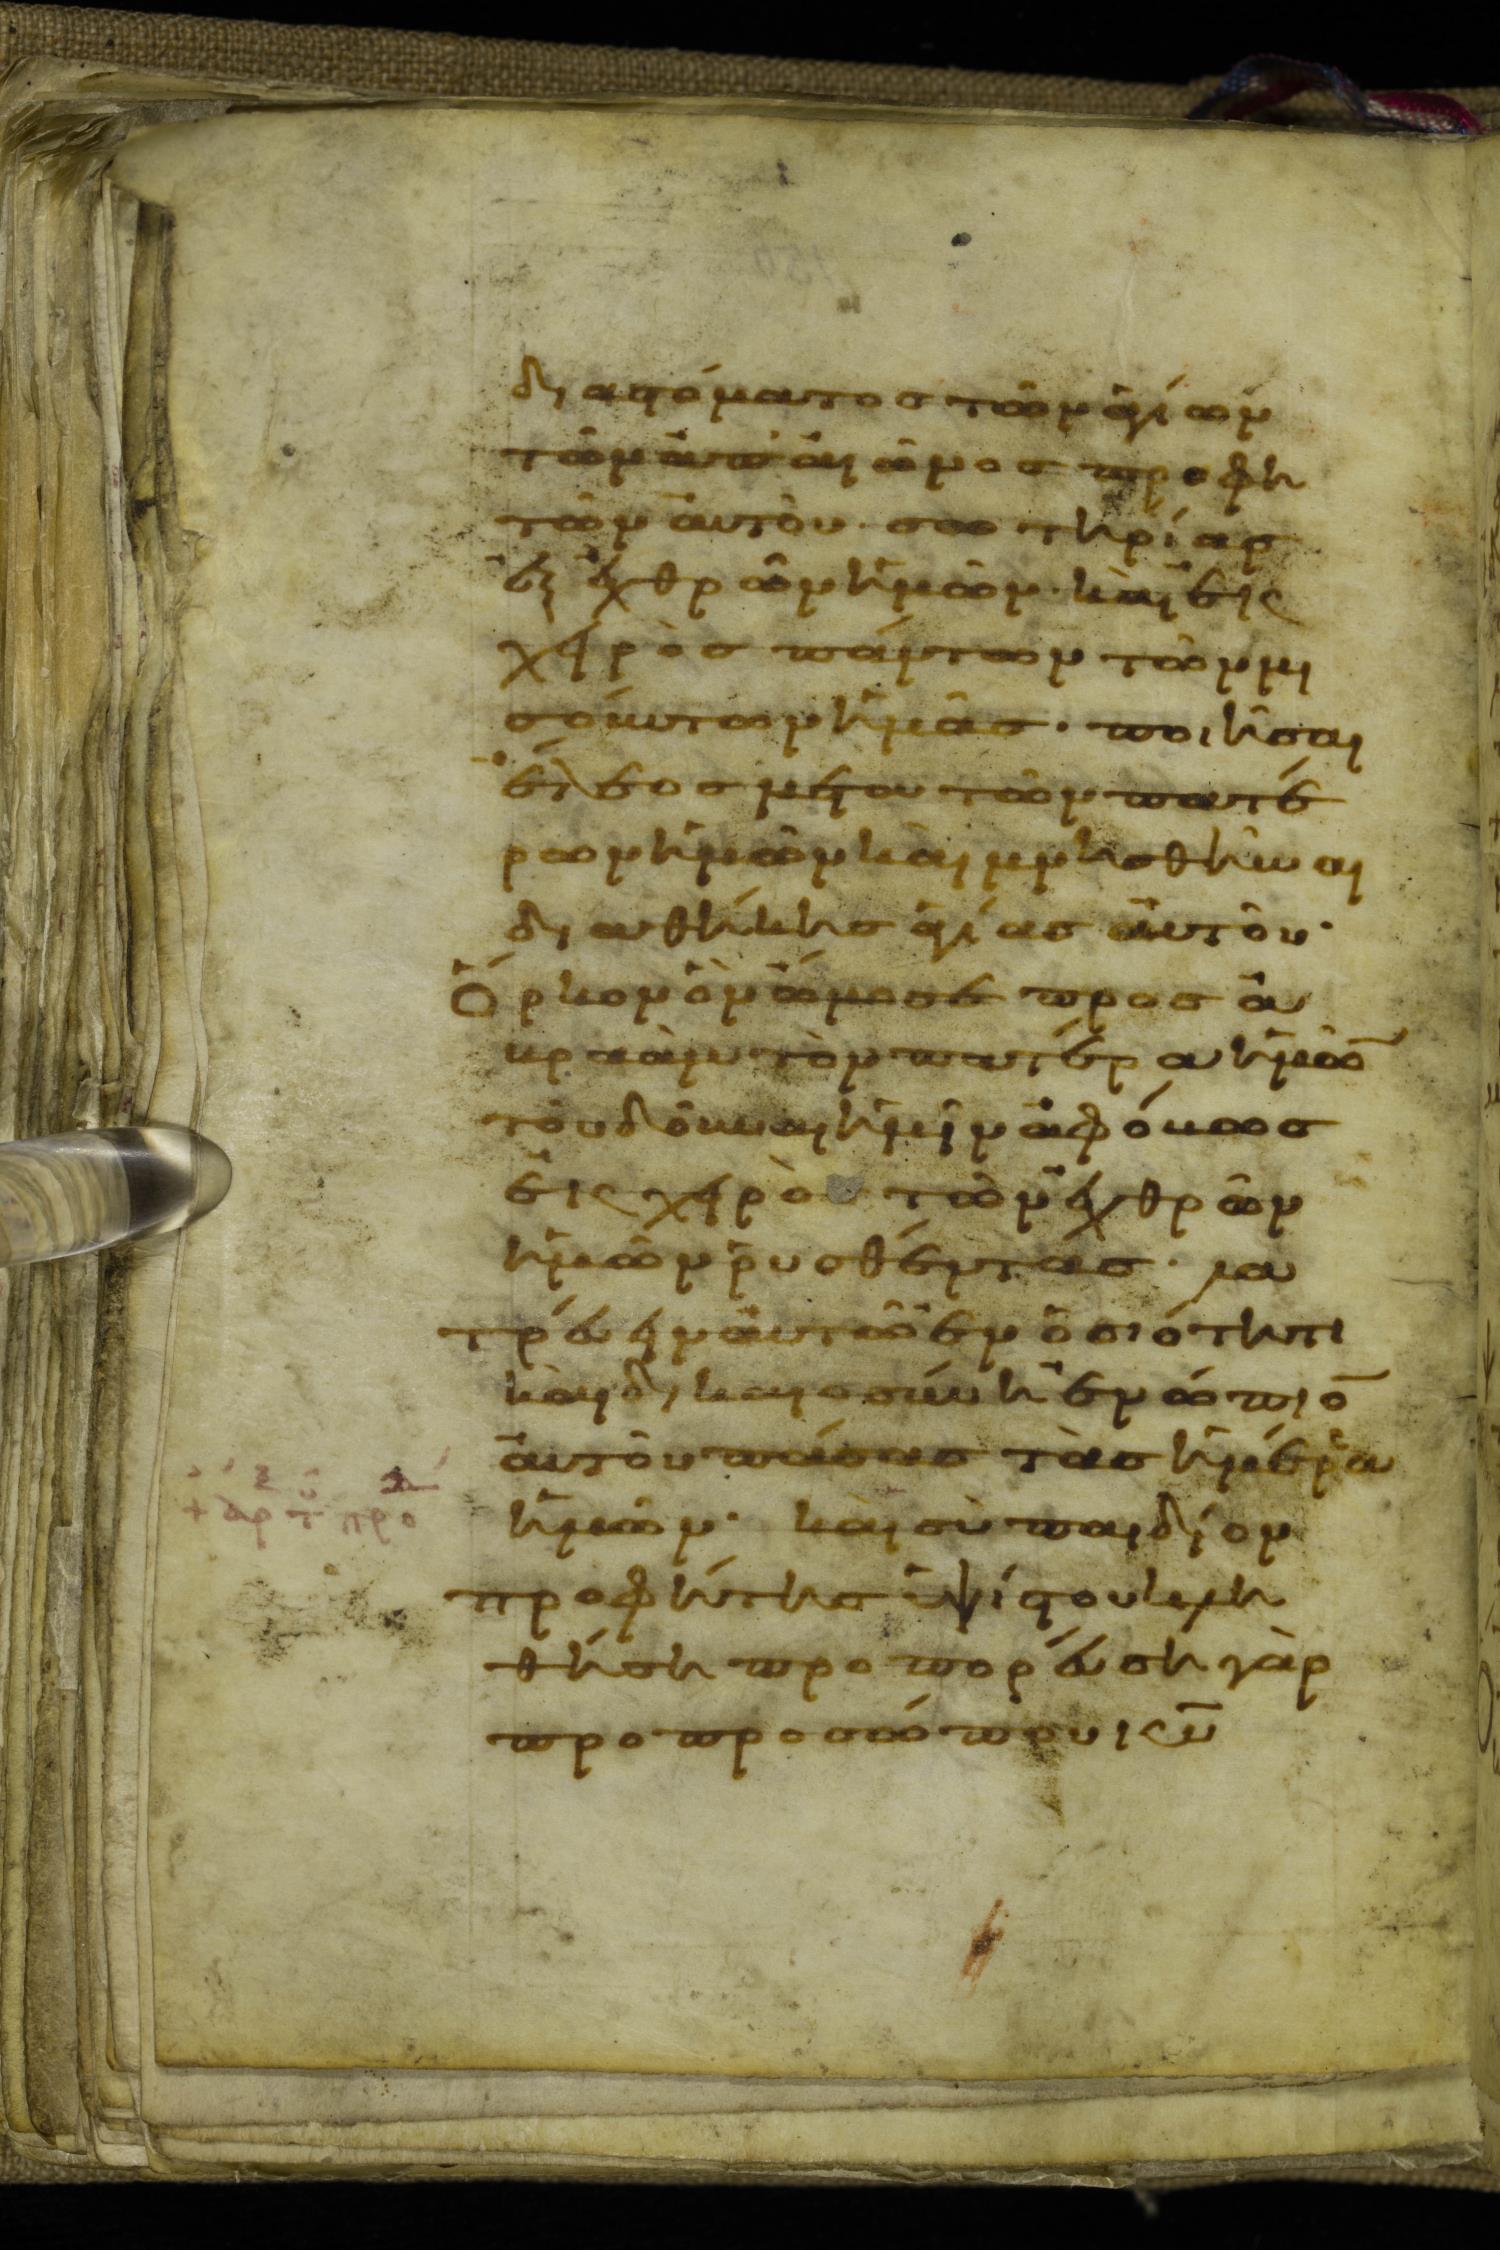 διαστόματος τῶν ἁγίων
τῶν ἀπ' αἰῶνος προφη
τῶν αὐτοῦ· σωτηρίας
ἐξ ἐχθρῶν ἡμῶν· καὶ εἰς
χειρὸς πάντων τῶν μι
σούντων ἡμᾶς· ποιῆσαι
ἔλεος μετου τῶν πατέ
ρων ἡμῶν καὶ μνησθῆναι
διαθήκης ἁγίας αὐτοῦ·
Ὅρκον ὃν ὤμοσε προς ἀ
κραὰμ τὸν πατέρα ἡμῶ̄
τοῦ δοῦναι ἡμῖν ἀφόνως
εἰς χειρὸς τῶν ἐχθρῶν
ἡμῶν ῥυσθέντας· λα
τρεύειν αὐτῶ ἐν ὁσιότητι
καὶ δικαιοσύνη ἐνώπιο̄
αὐτοῦ πάσας τὰς ἡμέρα
ἡμῶν· καὶ σὺ παιδίον
προφήτης ὑψίστου κλη
θήση προπορεύση γὰρ
προ προσώπου κ̄ῡ